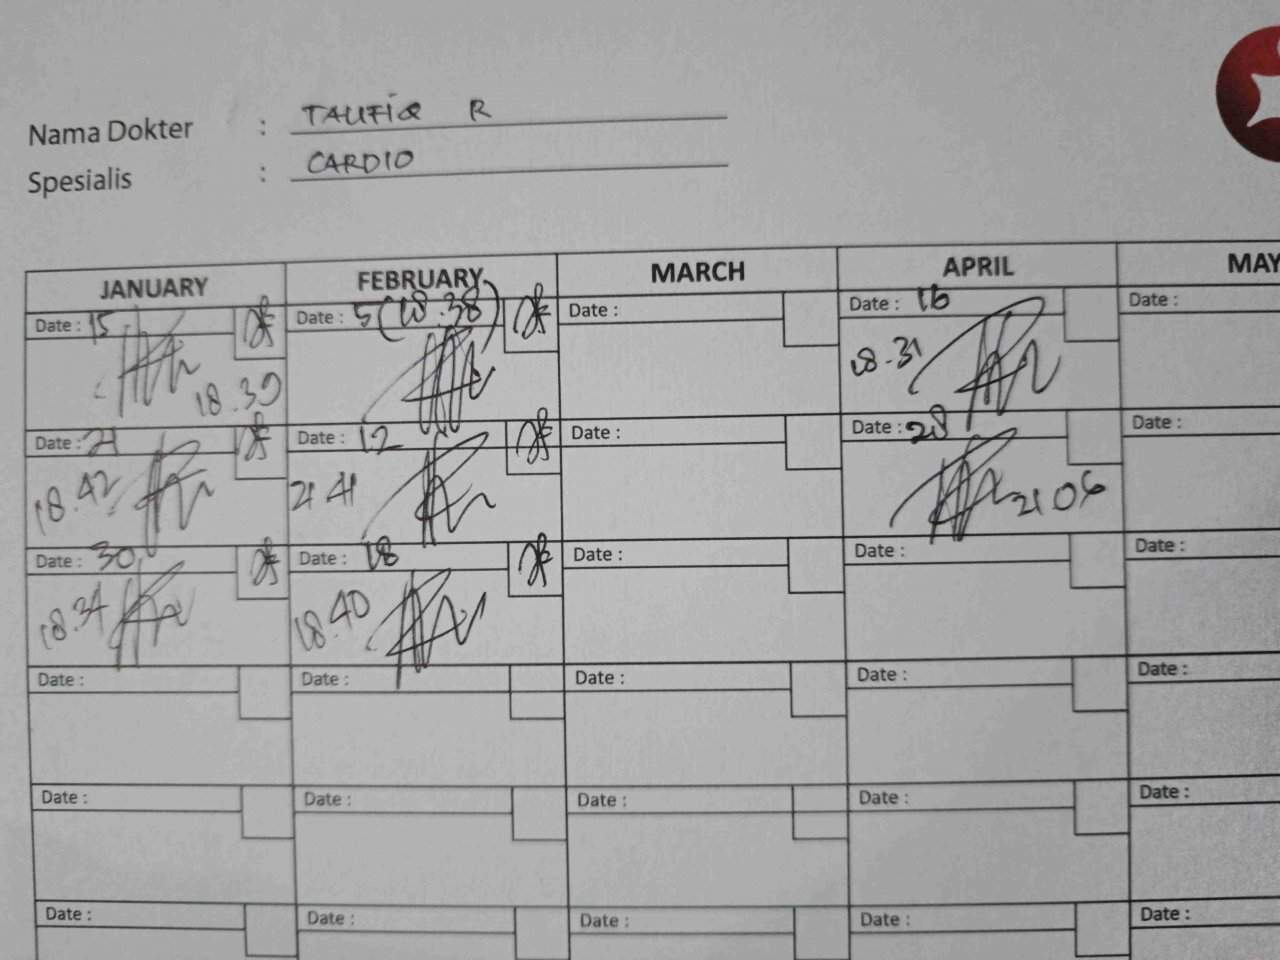 Nama Dokter : TAUFIQ R
Spesialis : CARDIO
JANUARY FEBRUARY MARCH APRIL MAY
Date : 15 Date : 5 (18.38) Date : Date : 16 Date :
18.39 18.31
Date : 21 Date : 12 Date : Date : 28 Date :
18.42 21 41 21 06
Date : 30 Date : 18 Date : Date : Date :
18.34 18.40
Date : Date : Date : Date : Date :
Date : Date : Date : Date : Date :
Date : Date : Date : Date : Date :